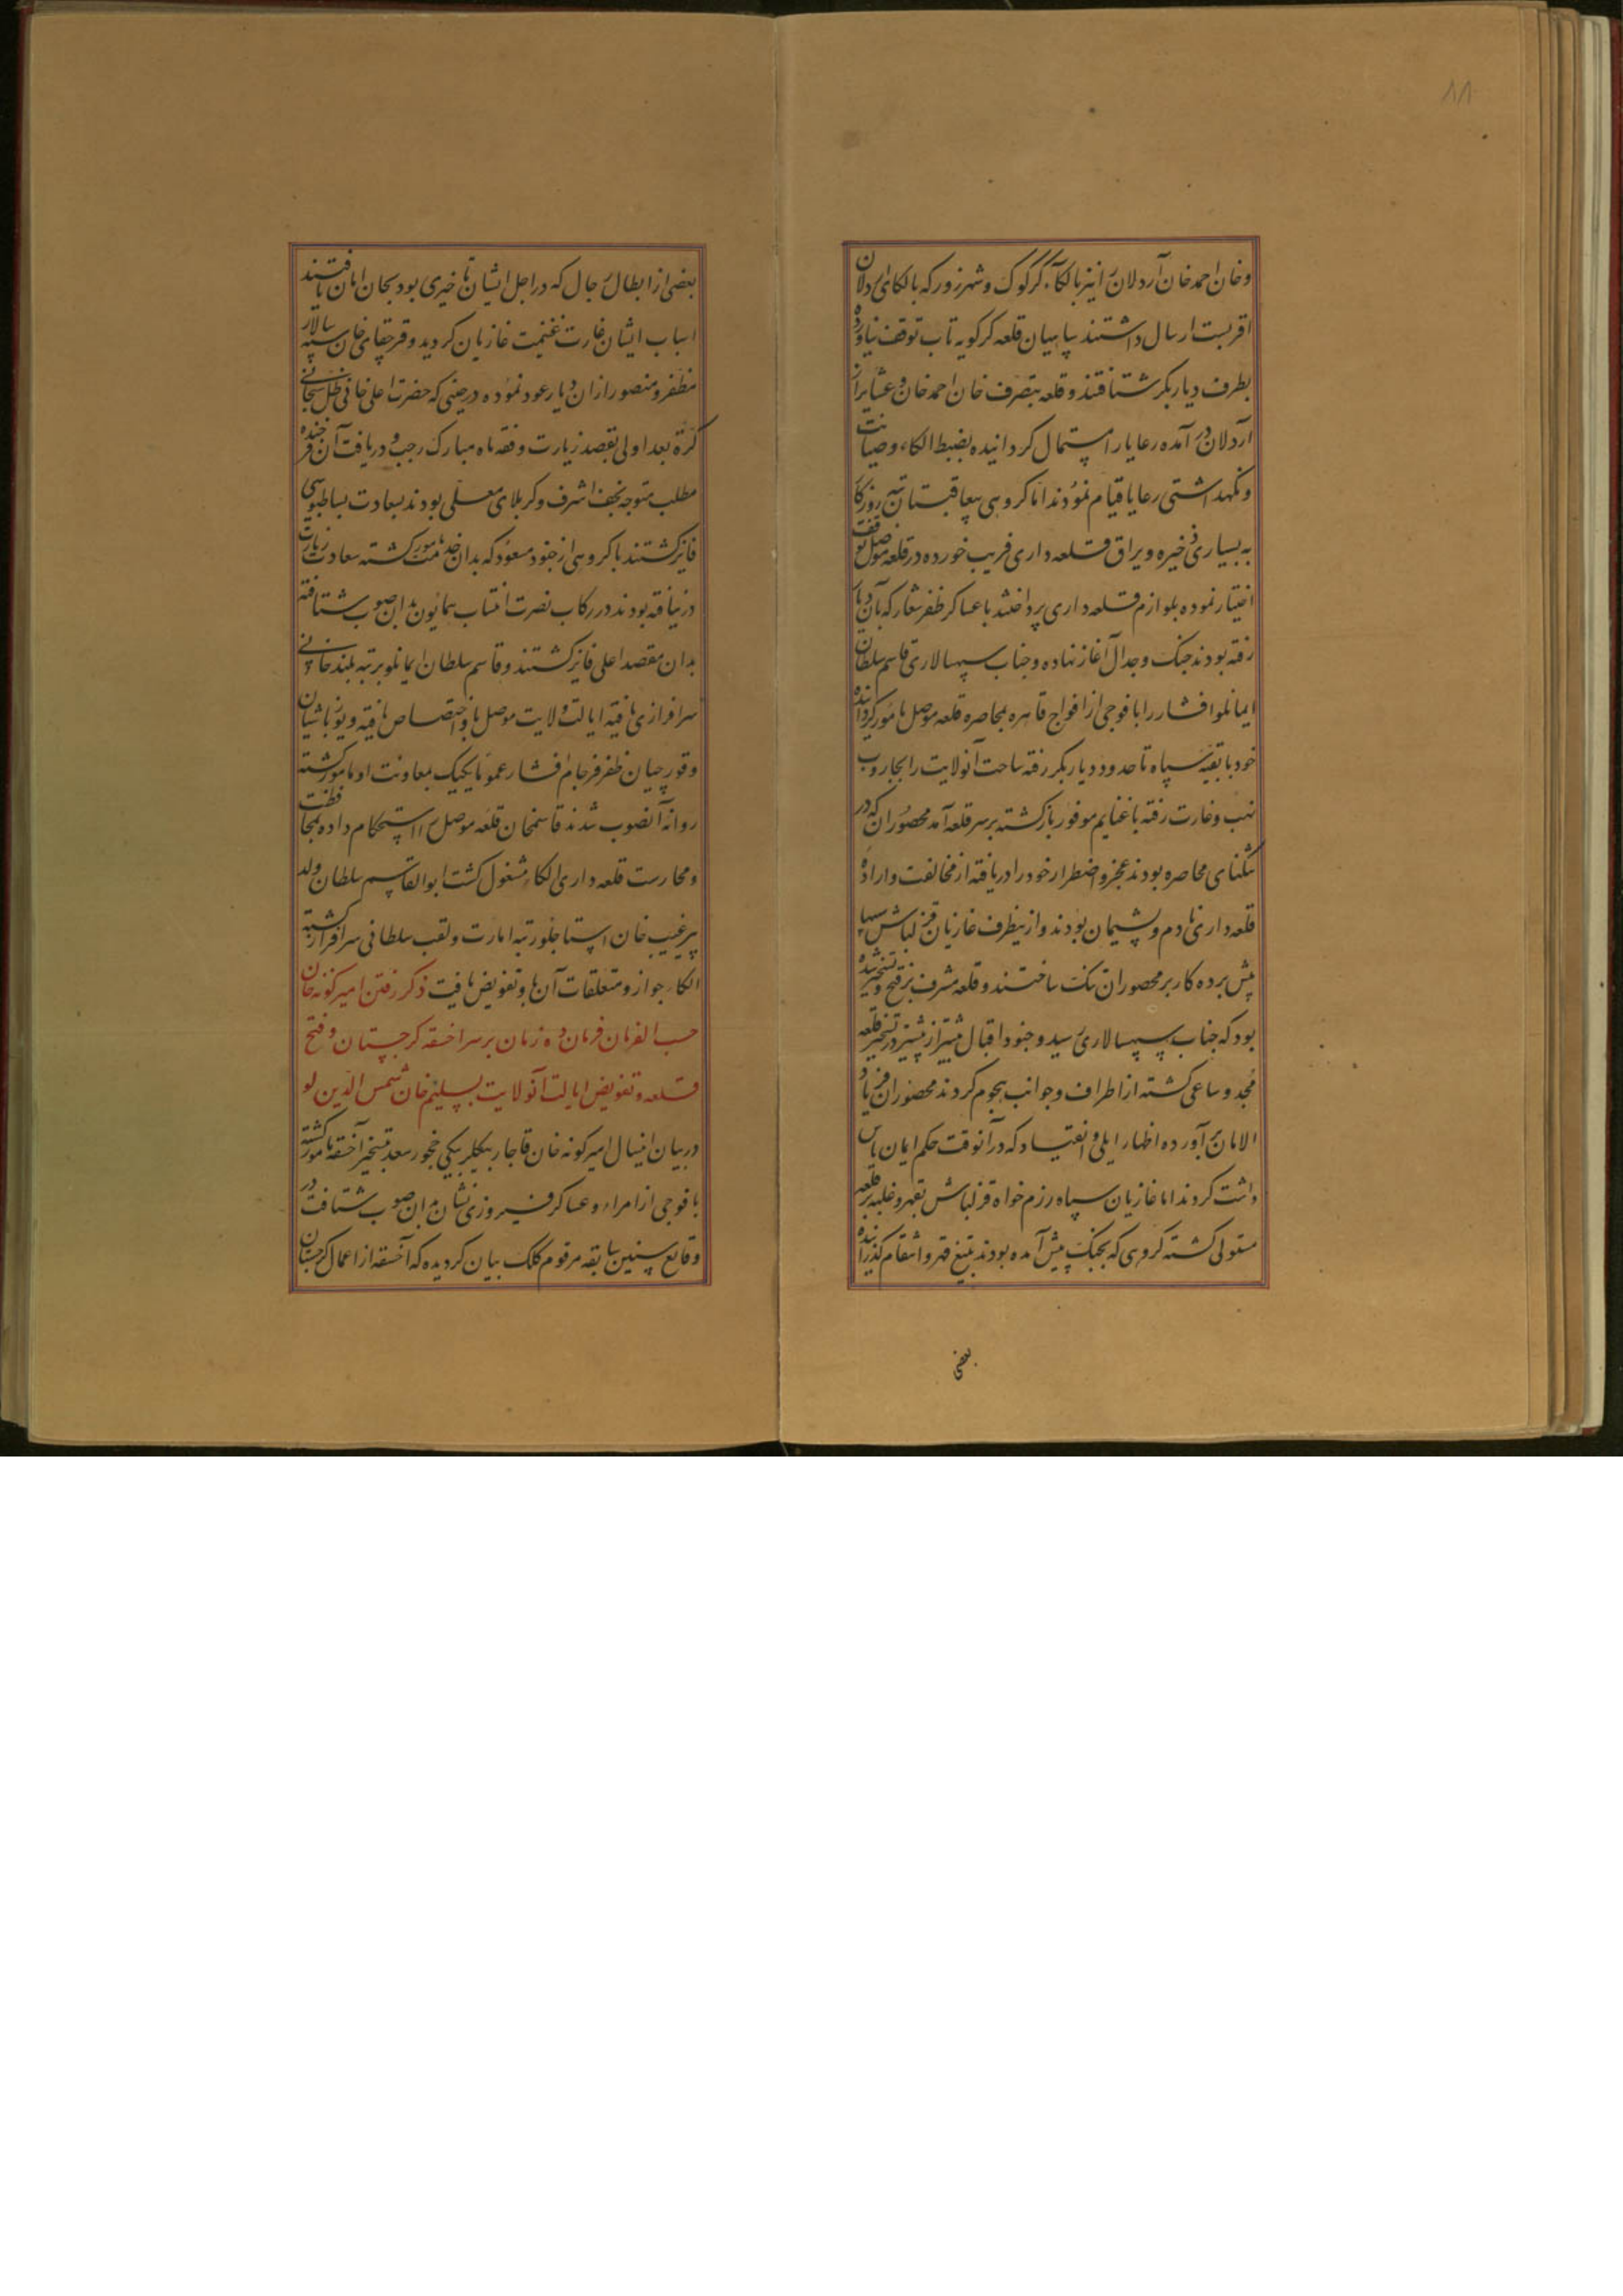 ۸۸
و خان احمد خان آردلان را نیز بالکاء کرکوک و شهرزور که بالکای اردلان
اقربست ارسال داشتند سپاهیان قلعه کرکویه تاب توقف نیاورده
بطرف دیاربکر شتافتند و قلعه بتصرف خان احمد خان و عشایر
آردلان در آمده رعایا را استمال کردانیده بضبط الکاء و صیانت
و نکهداشتی رعایا قیام نمودند اما کروهی بیعاقبتان تبه روزکار
به بسیاری ذخیره و یراق قلعه داری فریب خورده در قلعه موصل توقف
اختیار نموده بلوازم قلعه داری پرداختند با عساکر ظفر شعار که بآن دیار
رفته بودند جنک و جدال آغاز نهاده و جناب سپهسالاری قاسم سلطان
ایمانلو افشار را با فوجی از افواج قاهره بمحاصره قلعه موصل مامور کردانیده
خود با بقیه سپاه تا حدود دیاربکر رفته ساحت آنولایت را بجاروب
نهب و غارت رفته با غنایم موفور بازکشته بر سر قلعه آمد محصوران که در
تنکنای محاصره بودند عجز و اضطرار خود را دریافته از مخالفت و اراده
قلعه داری نادم و پشیمان بودند و از ینطرف غازیان قزلباش سیبها
پیش برده کار بر محصوران تنک ساختند و قلعه مشرف بر فتح و تسخیر شده
بود که جناب سپهسالاری رسید و جنود اقبال بیشتر از پیشتر در تسخیر قلعه
مجد و ساعی کشته از اطراف و جوانب هجوم کردند محصوران فریاد
الامان برآورده اظهار ایلی و انقیاد که در آنوقت حکم ایمان یاس
داشت کردند اما غازیان سپاه رزم خواه قزلباش بقهر و غلبه بر قلعه
مستولی کشته کروهی که بجنک پیش آمده بودند بتیغ قهر و انتقام کذرانیده
بعضی
بعضی از ابطال رجال که در اجل ایشان تاخیری بود بجان امان یافتند
اسباب ایشان غارت غنیمت غازیان کردید و قرچقای خان سپه سالار
مظفر و منصور از ان دیار عود نموده در حینی که حضرت اعلی خاقانی ظل سبحانی
کرة بعد اولی بقصد زیارت وقفه ماه مبارک رجب و دریافت آن فرخنده
مطلب متوجه نجف اشرف و کربلای معلی بودند بسعادت بساطبوسی
فایز کشتند با کروهی از جنود مسعود که بدان خدمت مامور کشته سعادت زیارت
در نیافته بودند در رکاب نصرت انتساب همایون بدان صوب شتافته
بدان مقصد اعلی فایز کشتند و قاسم سلطان ایمانلو برتبه بلند خانی
سرافرازی یافته ایالت ولایت موصل باو اختصاص یافته و یوزباشیان
و قورچیان ظفر فرجام افشار عموما بکمک و معاونت او مامور کشته
روانه آنصوب شدند قاسمخان قلعه موصل را استحکام داده بمحافظت
و محارست قلعه داری الکاء مشغول کشت ابوالقاسم سلطان ولد
پیر غیب خان استاجلو رتبه امارت و لقب سلطانی سرافراز کشته
الکاء جواز و متعلقات آن باو تفویض یافت ذکر رفتن امیرکونه خان
حسب الفرمان فرمان ده زمان بر سر اخسقه کرجستان و فتح
قلعه و تفویض ایالت آنولایت بسلیم خان شمس الدین لو
در بیان اینسال امیرکونه خان قاجار بیکلربیکی چخور سعد بتسخیر آخسقه مامور کشته
با فوجی از امراء و عساکر فیروزی نشان بدان صوب شتافت در
وقایع سنین سابقه مرقوم کلک بیان کردیده که آخسقه از اعمال کرجستان